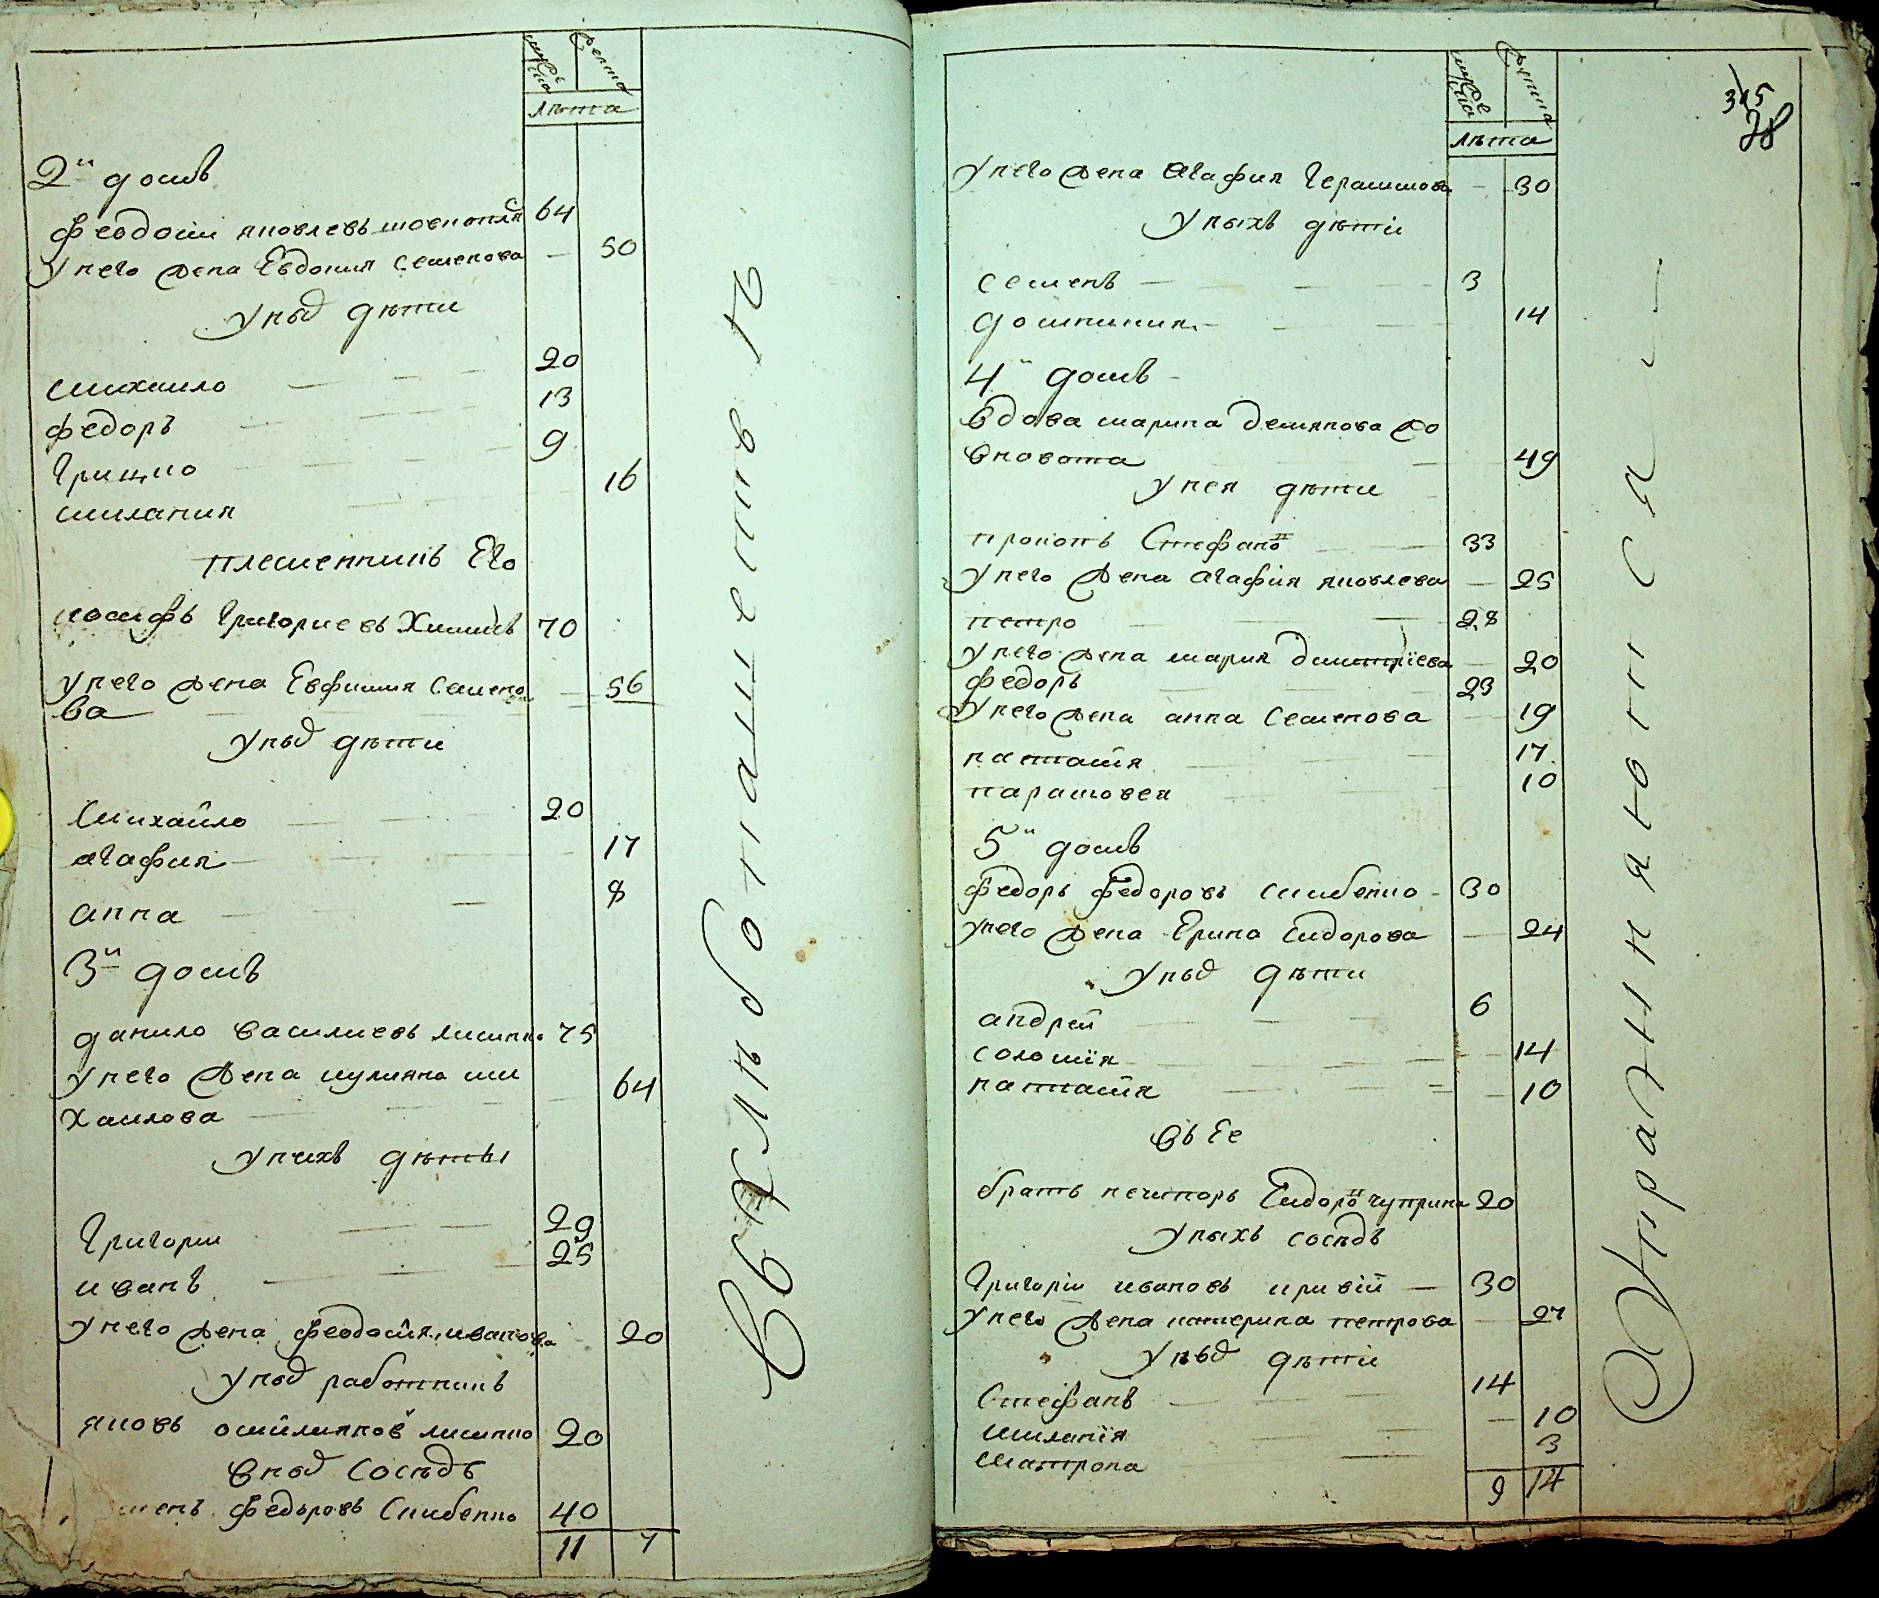 мужеска
женска
лѣта
2й домъ
Феодосий яковлевъ
64
у него жена Евдокия семенова — 50
у них дѣти
михаило — 20
федоръ — 13
Грицко — 9
милания 16
племенникъ Его
иосифъ Григориевъ 70
у него жена Евфимия семено
ва — 56
у них дѣти
михайло — 20
агафия — 17
анна — 8
3й домъ
данило василиевъ 75
у него жена иулияна ми
хаилова — 64
у нихъ дѣты
Григорий — 29
иванъ — 25
у него жена феодосия иванова 20
у них работникъ
яковъ 20
в них сосѣдъ
федоровъ 40
11 7
мужеска
женска
лѣта
315
у него жена Агафия Герасимова — 30
у ныхъ дѣти
семенъ — 3
домникия — 14
4й домъ
вдова марина демянова
49
у нея дѣти
прокопъ Стефановъ — 33
у него жена агафия яковлева — 25
петро — 28
у него жена мария димитриева — 20
федоръ — 23
у него жена анна семенова — 19
наталия — 17
парасковея — 10
5й домъ
федоръ федоровъ 30
у него жена Ерина Сидорова — 24
у них дѣти
андрей — 6
соломия — 14
наталия — 10
въ Ее
братъ нечипоръ Сидоровъ чуприна 20
у ныхъ сосѣдъ
Григорий ивановъ кривий — 30
у него жена катерина петрова — 27
у них дѣти
Стефанъ — 14
милания — 10
матрона — 3
9 14